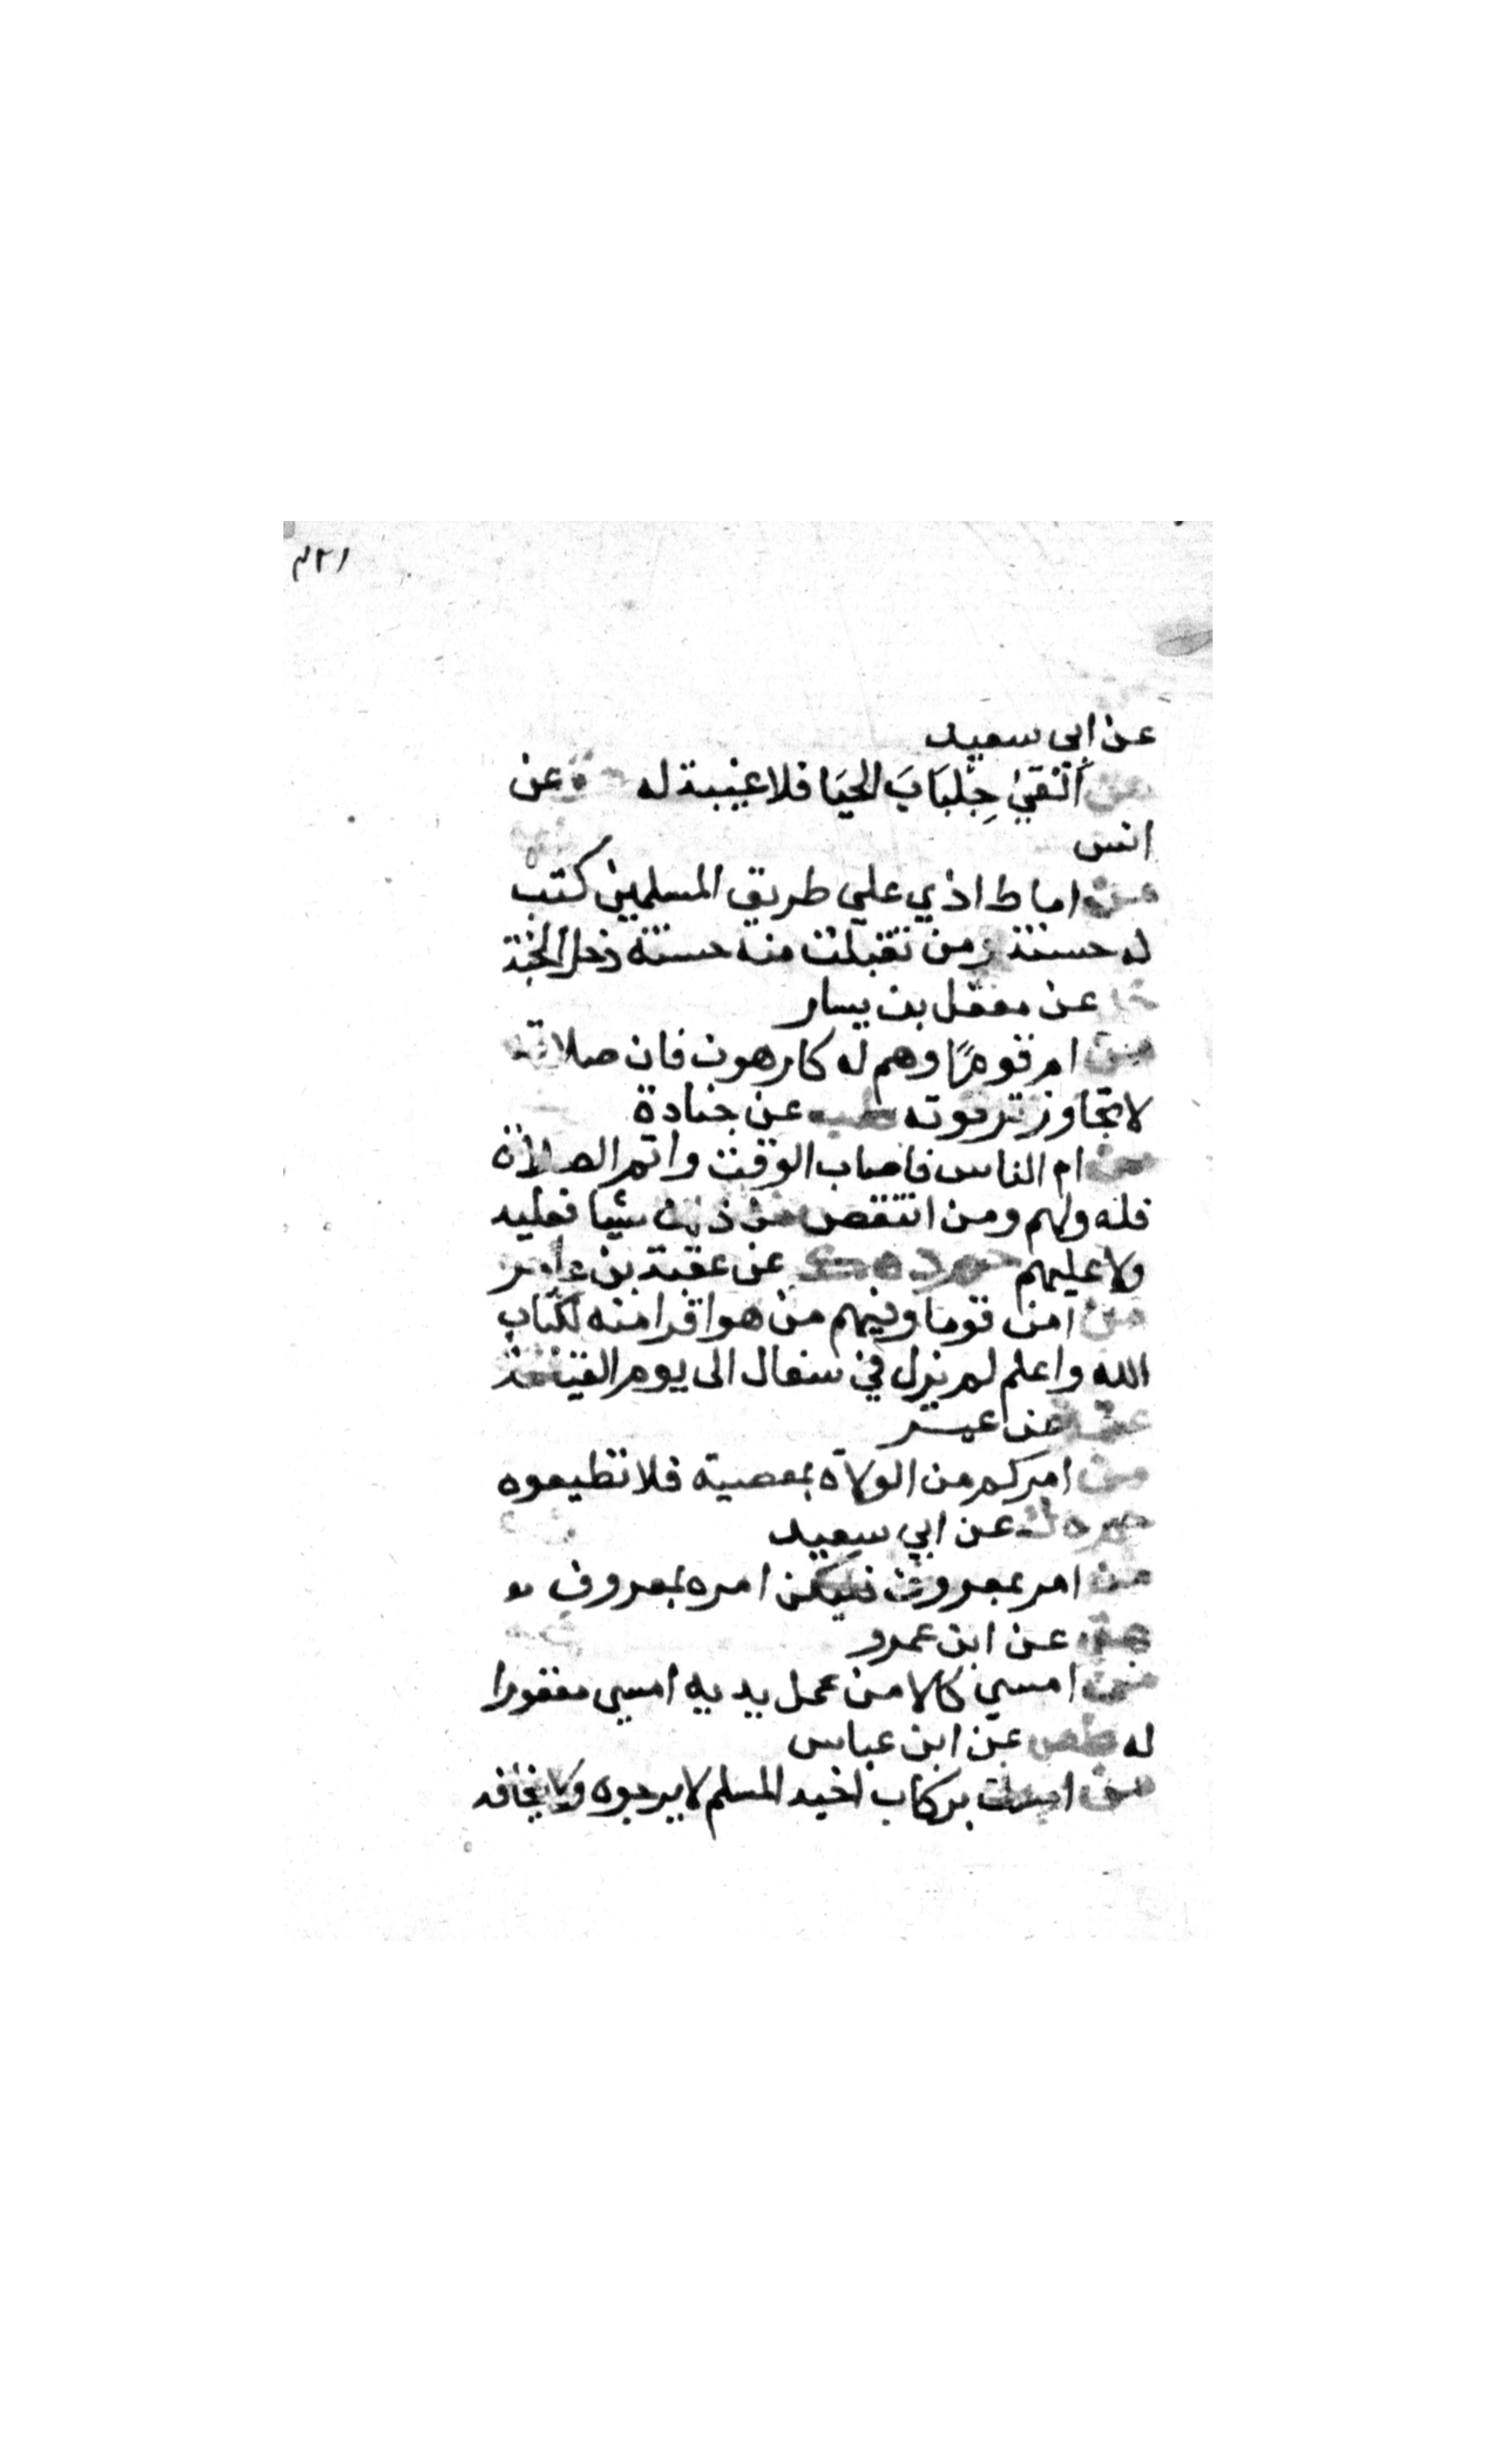 ٣٢١
عن ابي سعيد
من القي جِلبَابَ الحيَا فلا غيبة له عن
انس
من اماط اذي علي طريق المسلمين كتب
له حسنة ومن تقبلت منه حسنة دخل الجنة
عن معقل بن يسار
من ام قومًا وهم له كارهون فان صلاته
لا تجاوز ترقوته طب عن جنادة
من ام الناس فاصاب الوقت واتم الصلاة
فله ولهم ومن انتقص من ذلك شيا فعليه
ولا عليهم حم د ه ك عن عقبة بن عامر
من ام قوما وفيهم من هو اقرا منه لكتاب
الله واعلم لم يزل في سفال الى يوم القيمة
عن
من امركم من الولاة بمعصية فلا تطيعوه
حم ه ك عن ابي سعيد
من امر بمعروف فليكن امره بمعروف
هب عن ابن عمرو
من امسي كالا من عمل يديه امسي مغفورا
له طص عن ابن عباس
من امسك بركاب اخيه المسلم لا يرجوه ولا يخافه